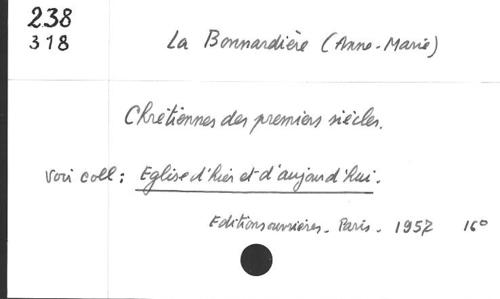 238
318
La Bonnardière (Anne-Marie)
Chrétiennes des premiers siècles.
Voir coll : Eglise d'hier et d'aujourd'hui.
Editions ouvrières. Paris. 1957 16°